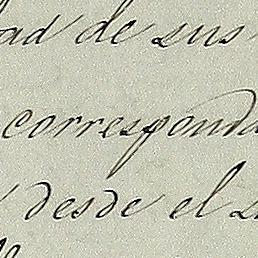 ad de sus
corresponda
desde el